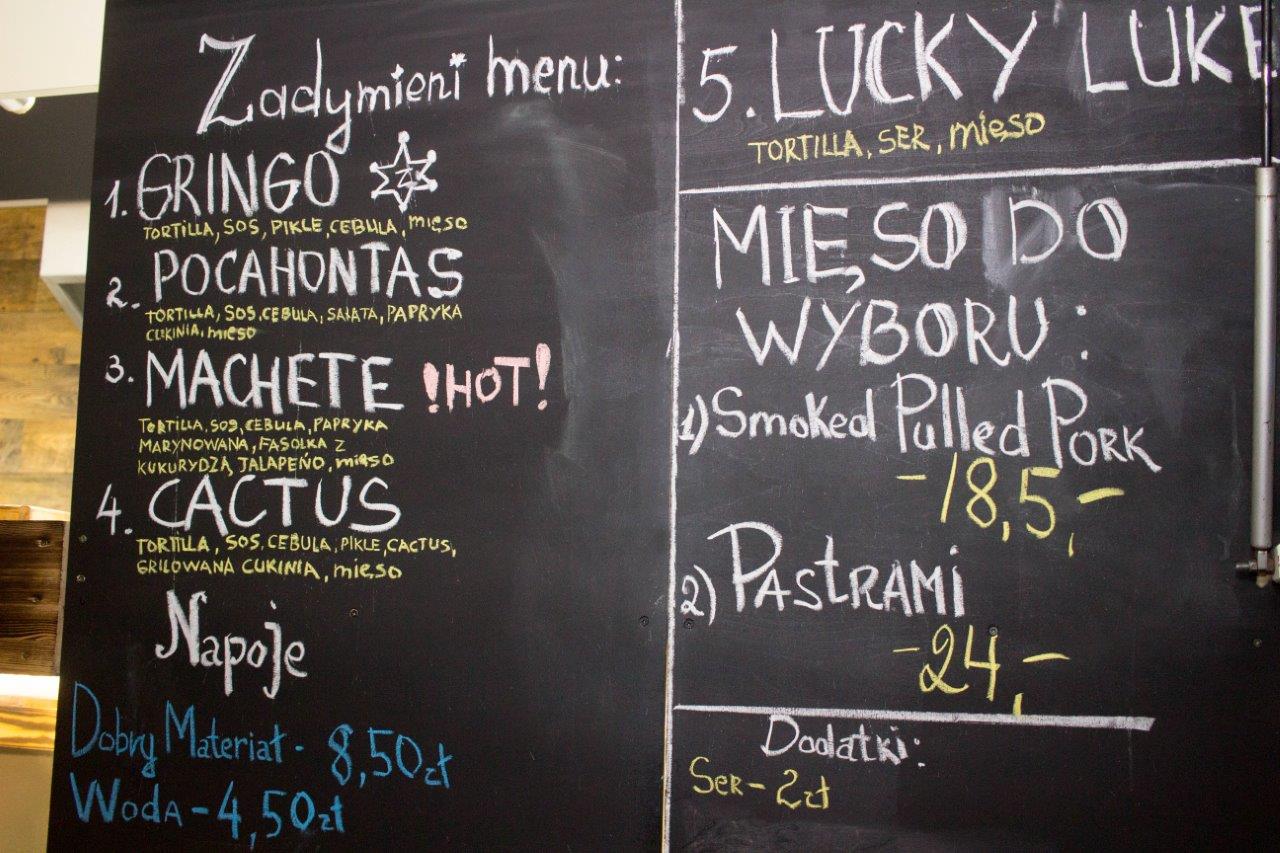 Zadymieni menu:
1. GRINGO
TORTILLA, SOS, PIKLE, CEBULA, mięso
2. POCAHONTAS
TORTILLA, SOS, CEBULA, SAŁATA, PAPRYKA
CUKINIA, mięso
3. MACHETE !HOT!
TORTILLA, SOS, CEBULA, PAPRYKA
MARYNOWANA, FASOLKA Z
KUKURYDZĄ, JALAPEŃO, mięso
4. CACTUS
TORTILLA, SOS, CEBULA, PIKLE, CACTUS,
GRILOWANA CUKINIA, mięso
Napoje
Dobry Materiał - 8,50zł
WODA - 4,50zł
5. LUCKY LUKE
TORTILLA, SER, mięso
MIĘSO DO
WYBORU:
1) Smoked Pulled PORK
-18,5,-
2) PASTRAMI
-24,-
Dodatki:
SER - 2zł